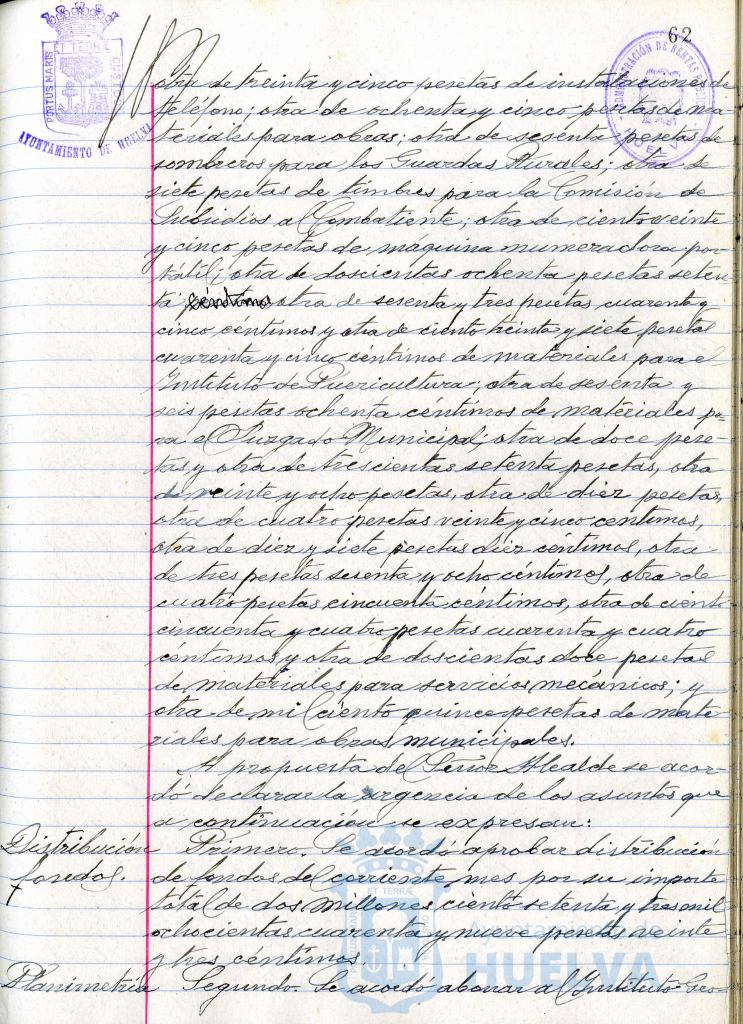 62
PORTUS MARIS
ET TERRÆ
CUSTODIA
AYUNTAMIENTO DE HUELVA
ADMINISTRACIÓN DE RENTAS
HUELVA
otra de treinta y cinco pesetas de instalaciones de
teléfono; otra de ochenta y cinco pesetas de ma-
teriales para obras; otra de sesenta pesetas de
sombreros para los Guardas Rurales; otra de
siete pesetas de timbres para la Comisión de
Subsidios al Combatiente; otra de ciento veinte
y cinco pesetas de máquina numeradora por-
tátil; otra de doscientas ochenta pesetas seten-
ta céntimos otra de sesenta y tres pesetas cuarenta y
cinco céntimos y otra de ciento treinta y siete pesetas
cuarenta y cinco céntimos de materiales para el
Instituto de Puericultura; otra de sesenta y
seis pesetas ochenta céntimos de materiales pa-
ra el Juzgado Municipal; otra de doce pese-
tas y otra de trescientas setenta pesetas, otra
de veinte y ocho pesetas, otra de diez pesetas,
otra de cuatro pesetas veinte y cinco centimos,
otra de diez y siete pesetas diez céntimos, otra
de tres pesetas sesenta y ocho céntimos, otra de
cuatro pesetas cincuenta céntimos, otra de ciento
cincuenta y cuatro pesetas cuarenta y cuatro
céntimos y otra de doscientas doce pesetas
de materiales para servicios mecánicos; y
otra de mil ciento quince pesetas de mate-
riales para obras municipales.
A propuesta del Señor Alcalde se acor-
dó declarar la urgencia de los asuntos que
a continuación se expresan:
Distribución Primero. Se acordó aprobar distribución
fondos. de fondos del corriente mes por su importe
total de dos millones ciento setenta y tres mil
ochocientas cuarenta y nueve pesetas veinte
y tres céntimos.
Planimetria Segundo. Se acordó abonar al Instituto Geo-
PORTUS MARIS
ET TERRÆ
CUSTODIA
Ayuntamiento de
HUELVA